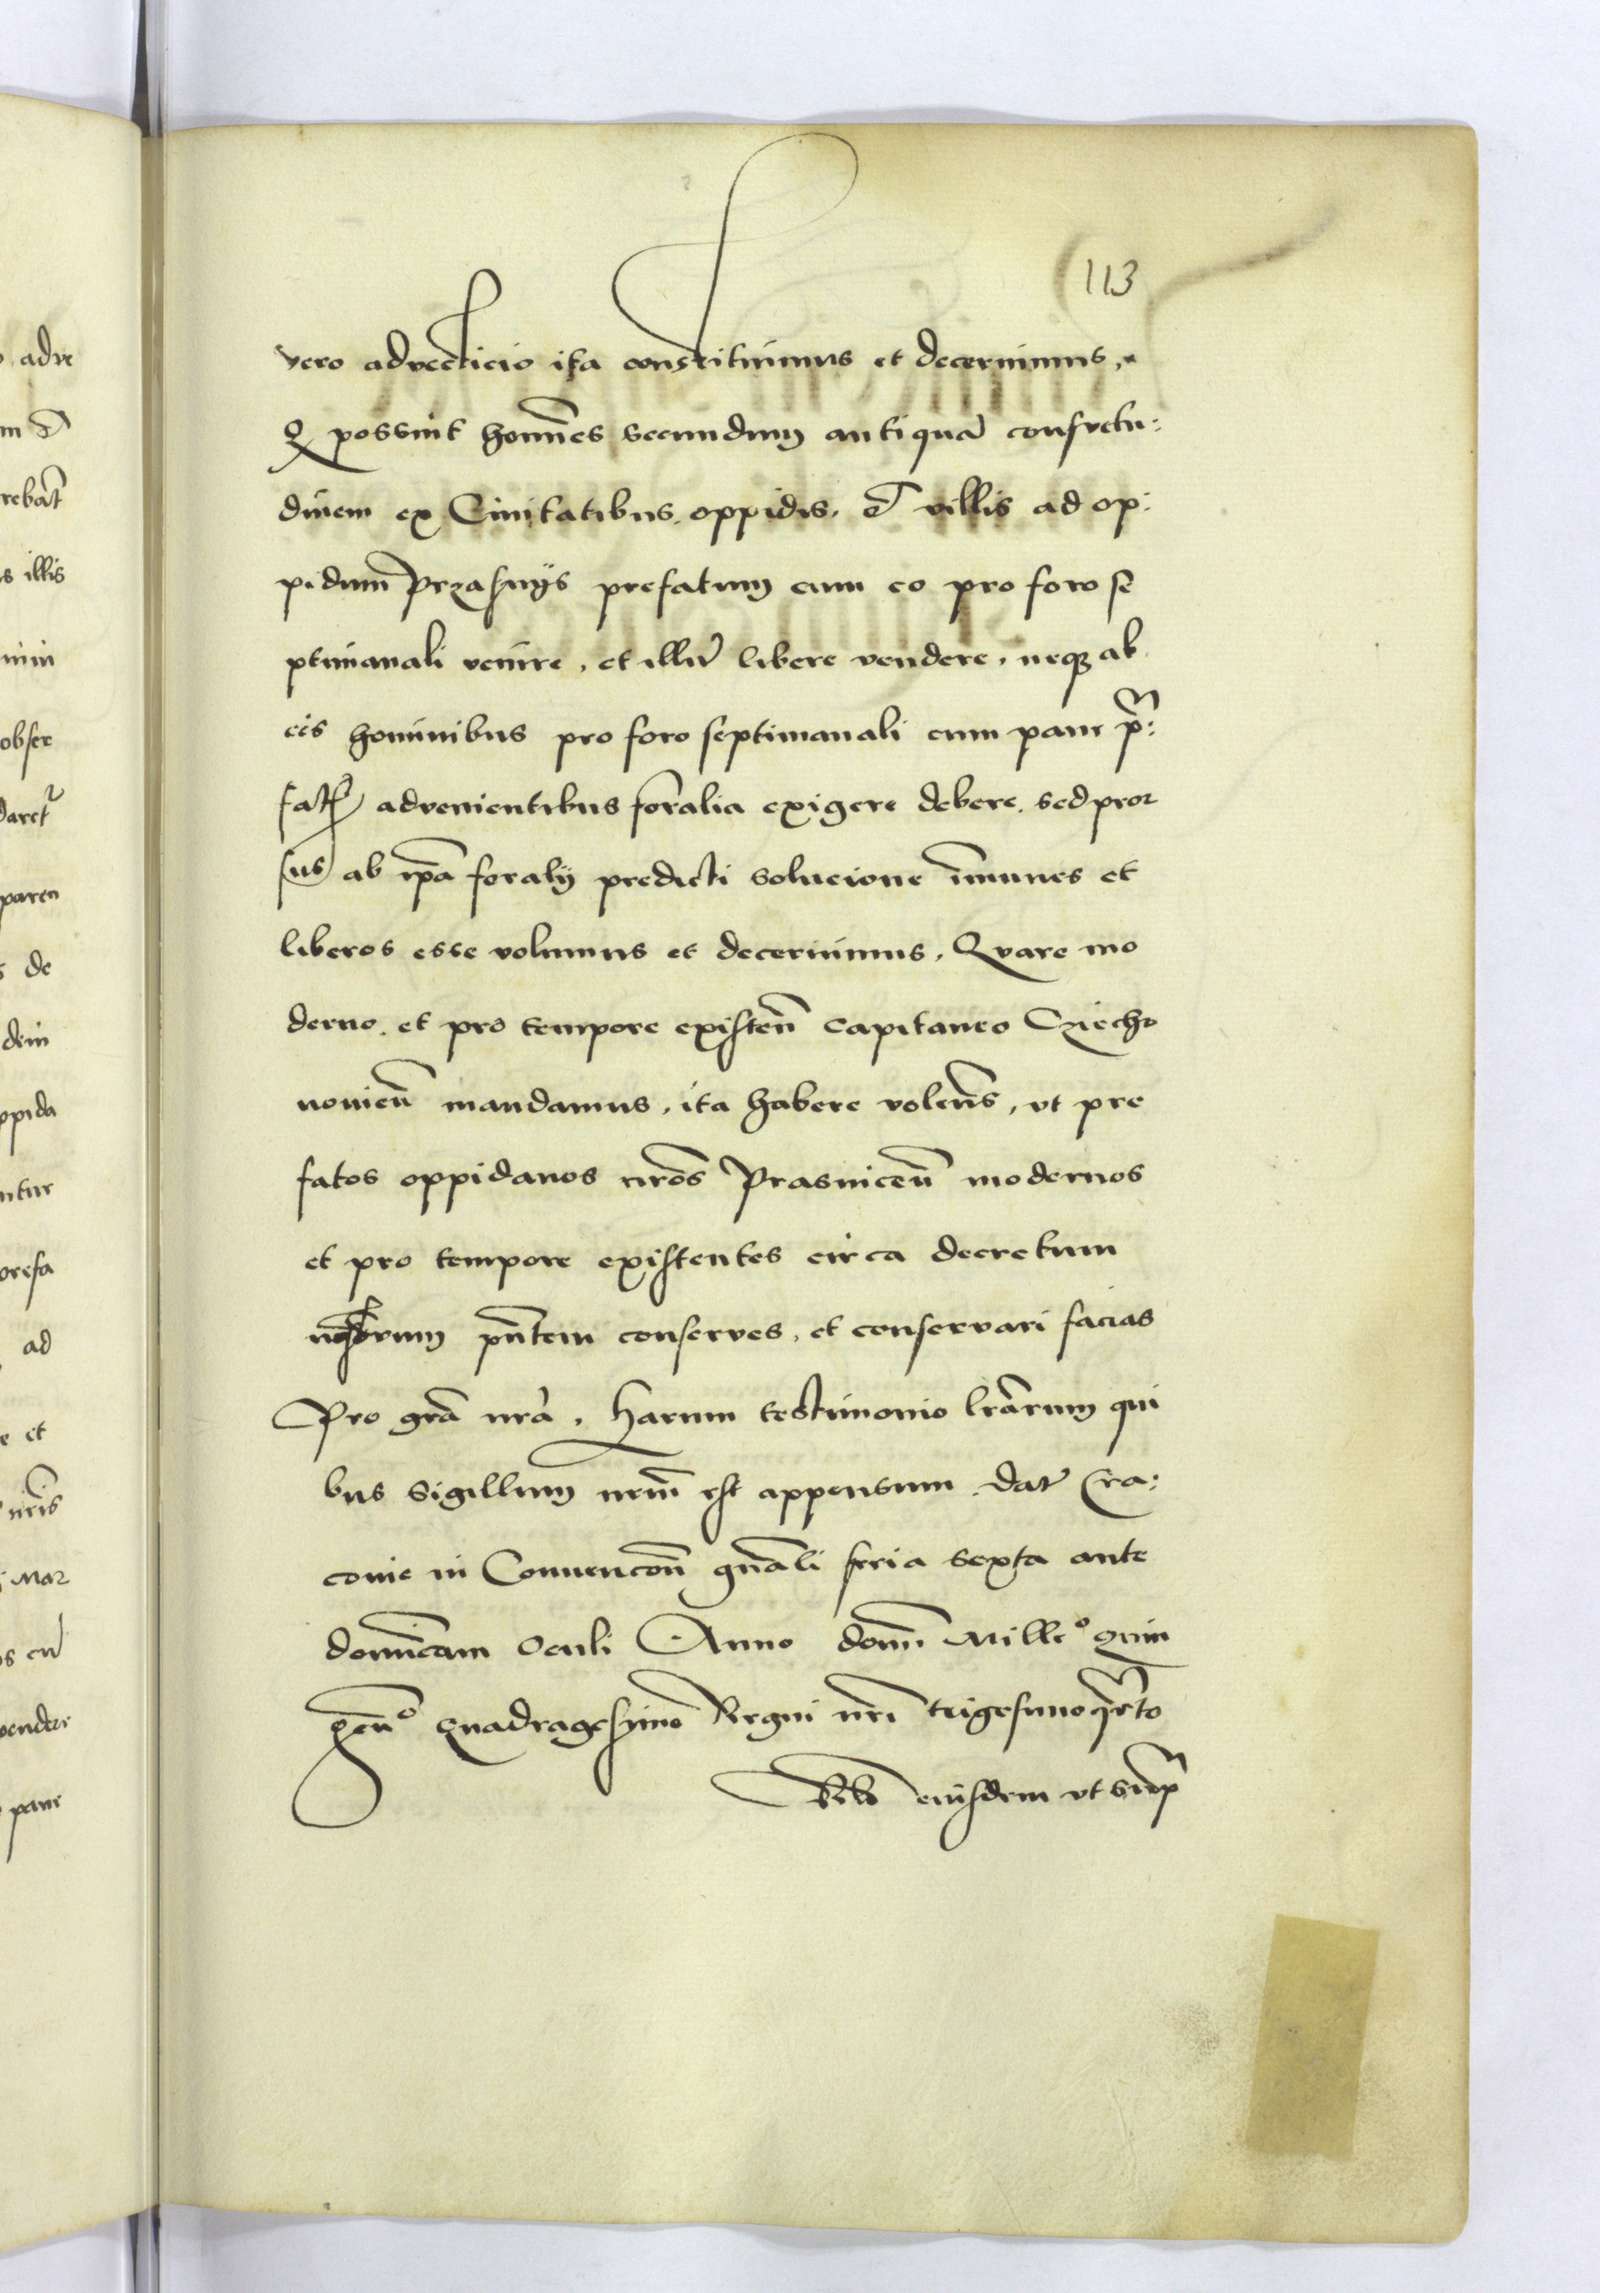 113
vero advecticio ita constituimus et decernimus,
Q possint homes secundum antiquā consvetu:
dinem ex Civitatibus, oppidis, et villis ad op:
pidum Przasnÿs prefatum cum eo pro foro se
ptimanali venire, et illic libere vendere, neqз ab
eis hominibus pro foro septimanali cum pane p̄:
fato advenientibus foralia exigere debere, sed pror
sus ab ip̄a foralÿ predicti solucione im̄unes et
liberos esse volumus et decernimus, Qvare mo
derno, et pro tempore existeñ capitaneo Cziecho
novieñ mandamus, ita habere voleñs, vt pre
fatos oppidanos nr̄os Prasniceñ modernos
et pro tempore existentes circa decretum
nostrum pn̄tem conserves, et conservari facias
Pro grā nrā, Harum testimonio lrārum qui
bus Sigillum nrm̄ est appensum, Dat Cra:
covie in Convencoñ gn̄ali feria sexta ante
domīcam Oculi Anno domi Mille° quin
geñ° Quadragesimo Regni nrī trigesimoqrto
Rela eiusdem vt supra
adre
rebat
s illis
obser
daret
paren
de
dein
ppida
ntur
prefa
ad
e et
nris
Maz
vender
pane